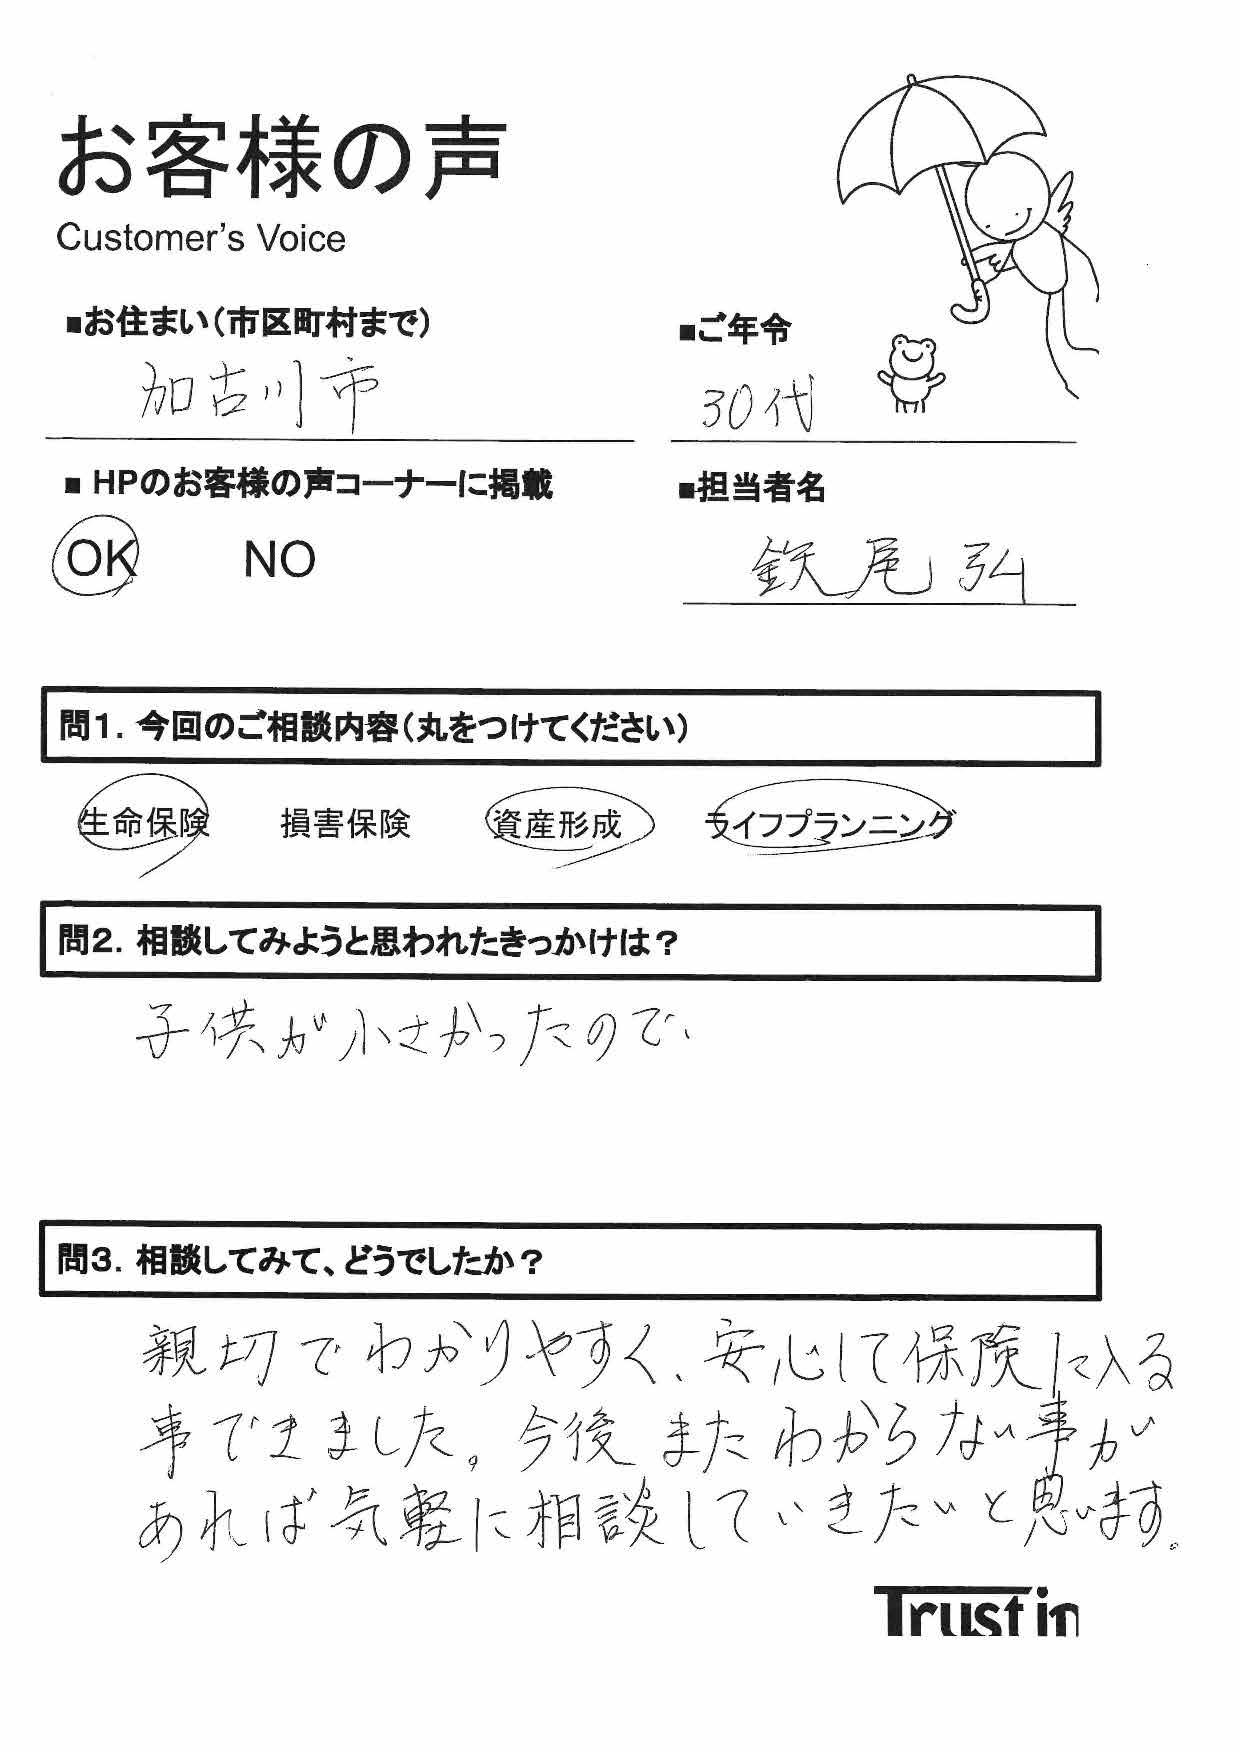 お客様の声
Customer's Voice
■お住まい(市区町村まで)
加古川市
■ご年令
30代
■ HPのお客様の声コーナーに掲載
OK NO
■担当者名
鉄尾弘
問1. 今回のご相談内容(丸をつけてください)
生命保険 損害保険 資産形成 ライフプランニング
問2. 相談してみようと思われたきっかけは?
子供が小さかったので、
問3. 相談してみて、どうでしたか?
親切でわかりやすく、安心して保険に入る
事できました。今後またわからない事が
あれば気軽に相談していきたいと思います。
Trust in